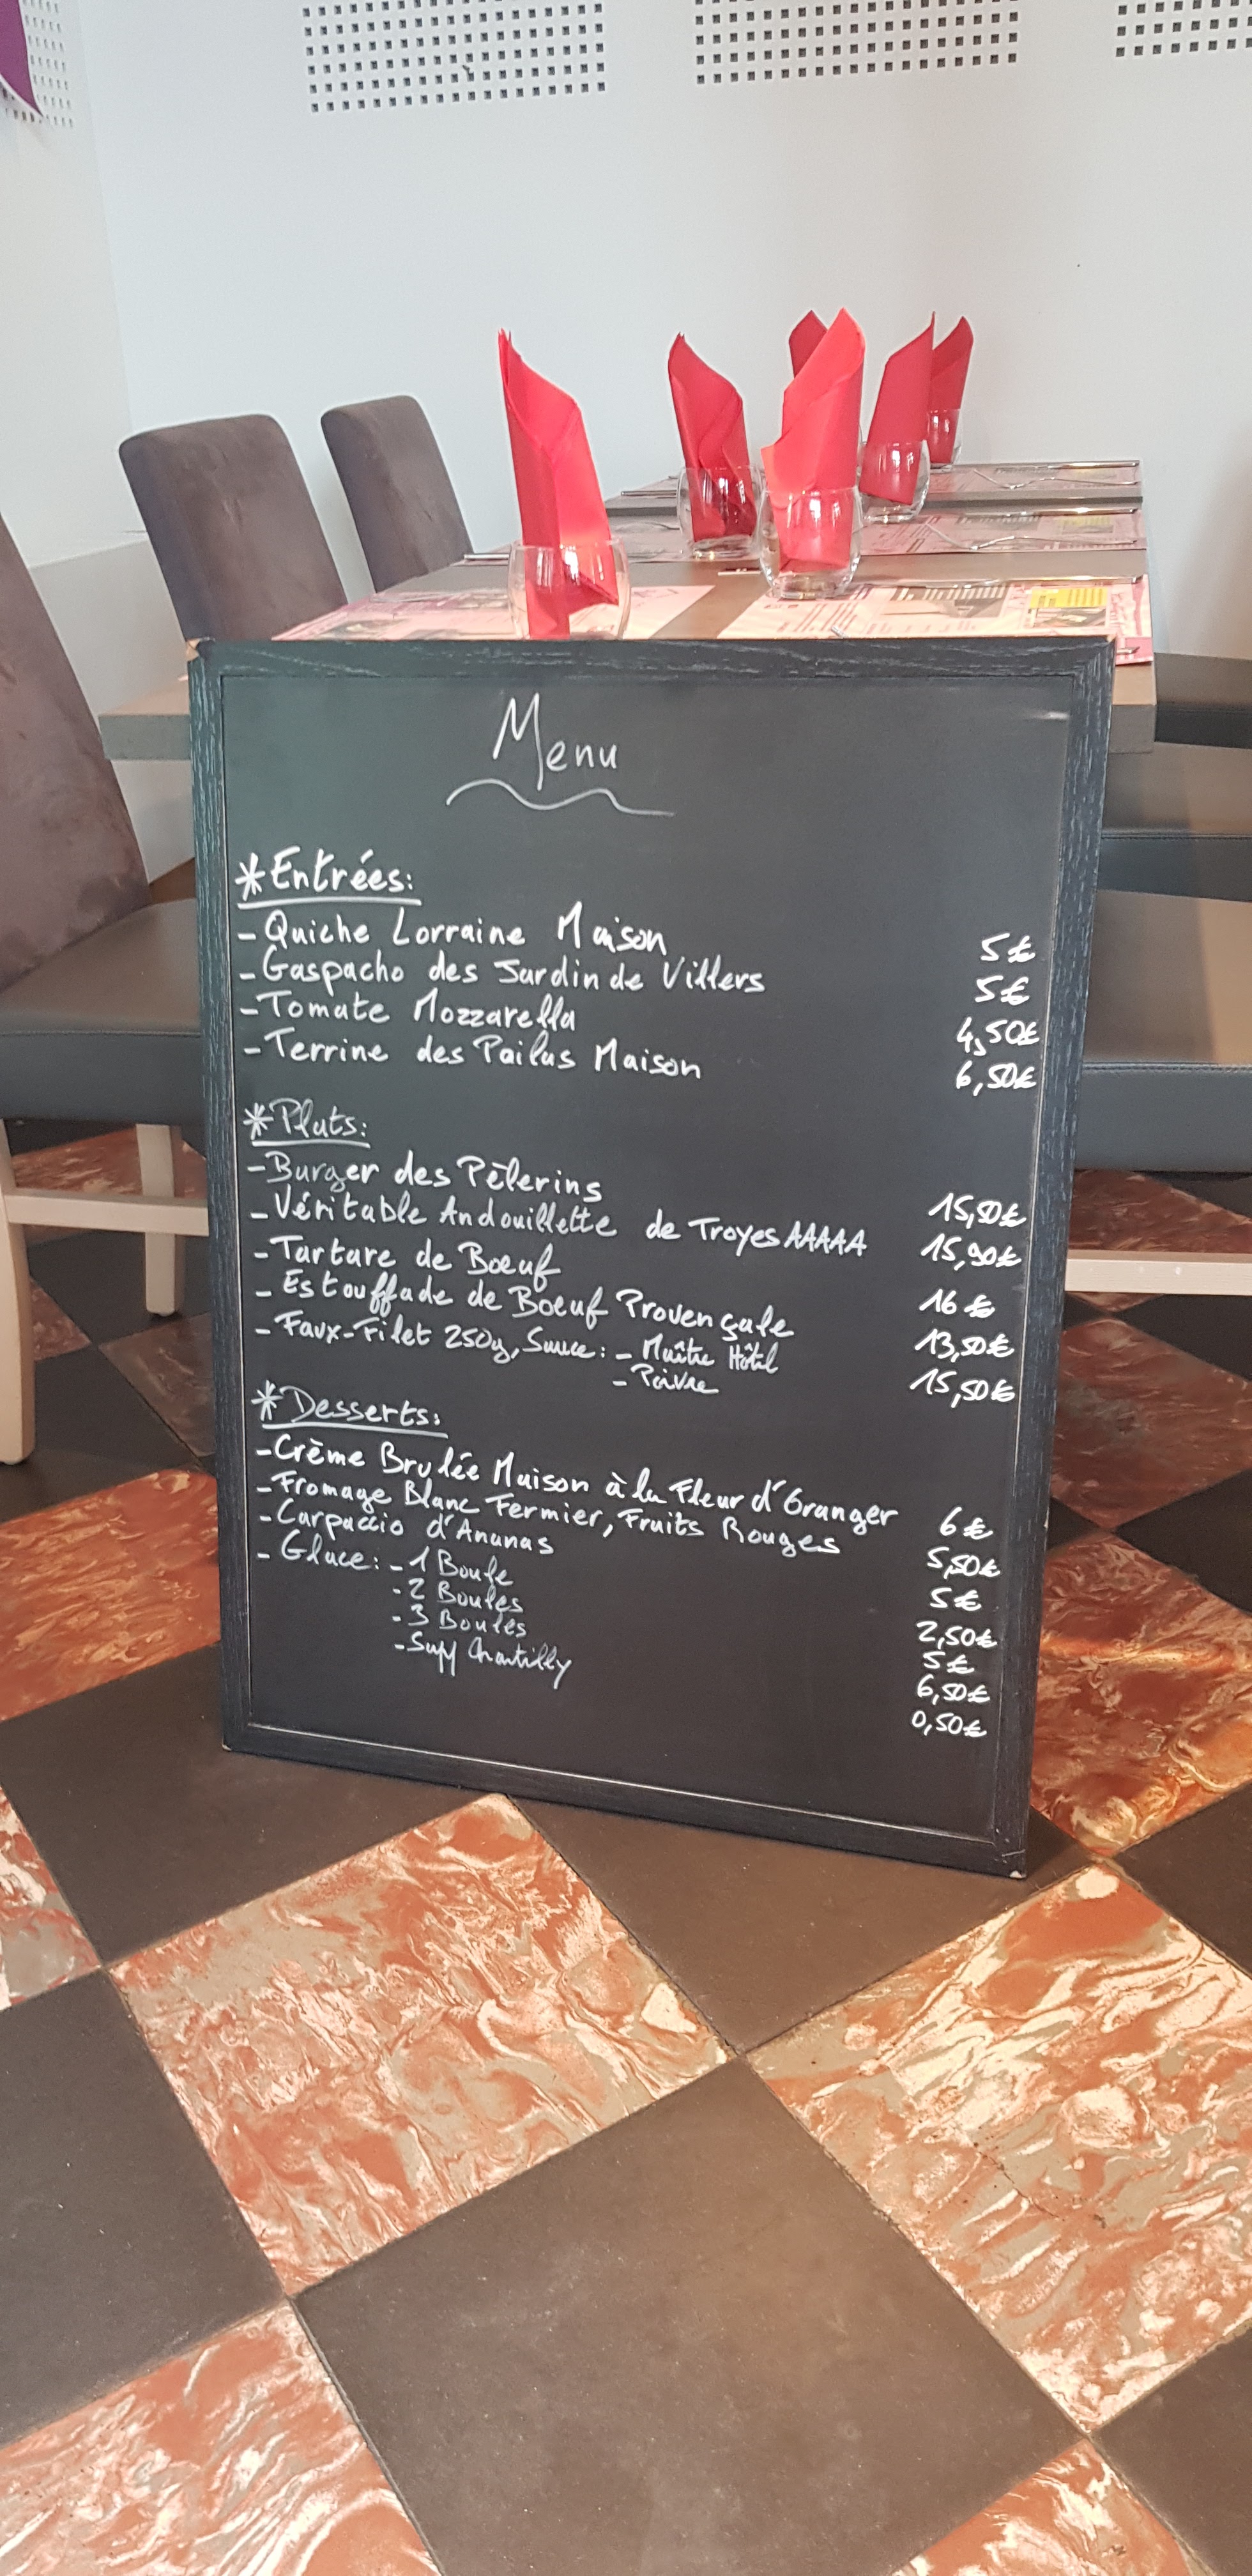 Menu
*Entrées:
-Quiche Lorraine Maison 5€
-Gaspacho des Jardin de Villers 5€
-Tomate Mozzarella 4,50€
-Terrine des Pailus Maison 6,50€
*Plats:
-Burger des Pèlerins 15,50€
-Véritable Andouillette de Troyes AAAAA 15,90€
-Tartare de Bœuf 16€
-Estouffade de Boeuf Provençale 13,50€
-Faux-Filet 250g, Sauce: -Maître Hôtel 15,50€
-Poivre
*Desserts:
-Crème Brulée Maison à la Fleur d'Oranger 6€
-Fromage Blanc Fermier, Fruits Rouges 5,50€
-Carpaccio d'Ananas 5€
-Glace: -1 Boule 2,50€
-2 Boules 5€
-3 Boules 6,50€
-Supp Chantilly 0,50€